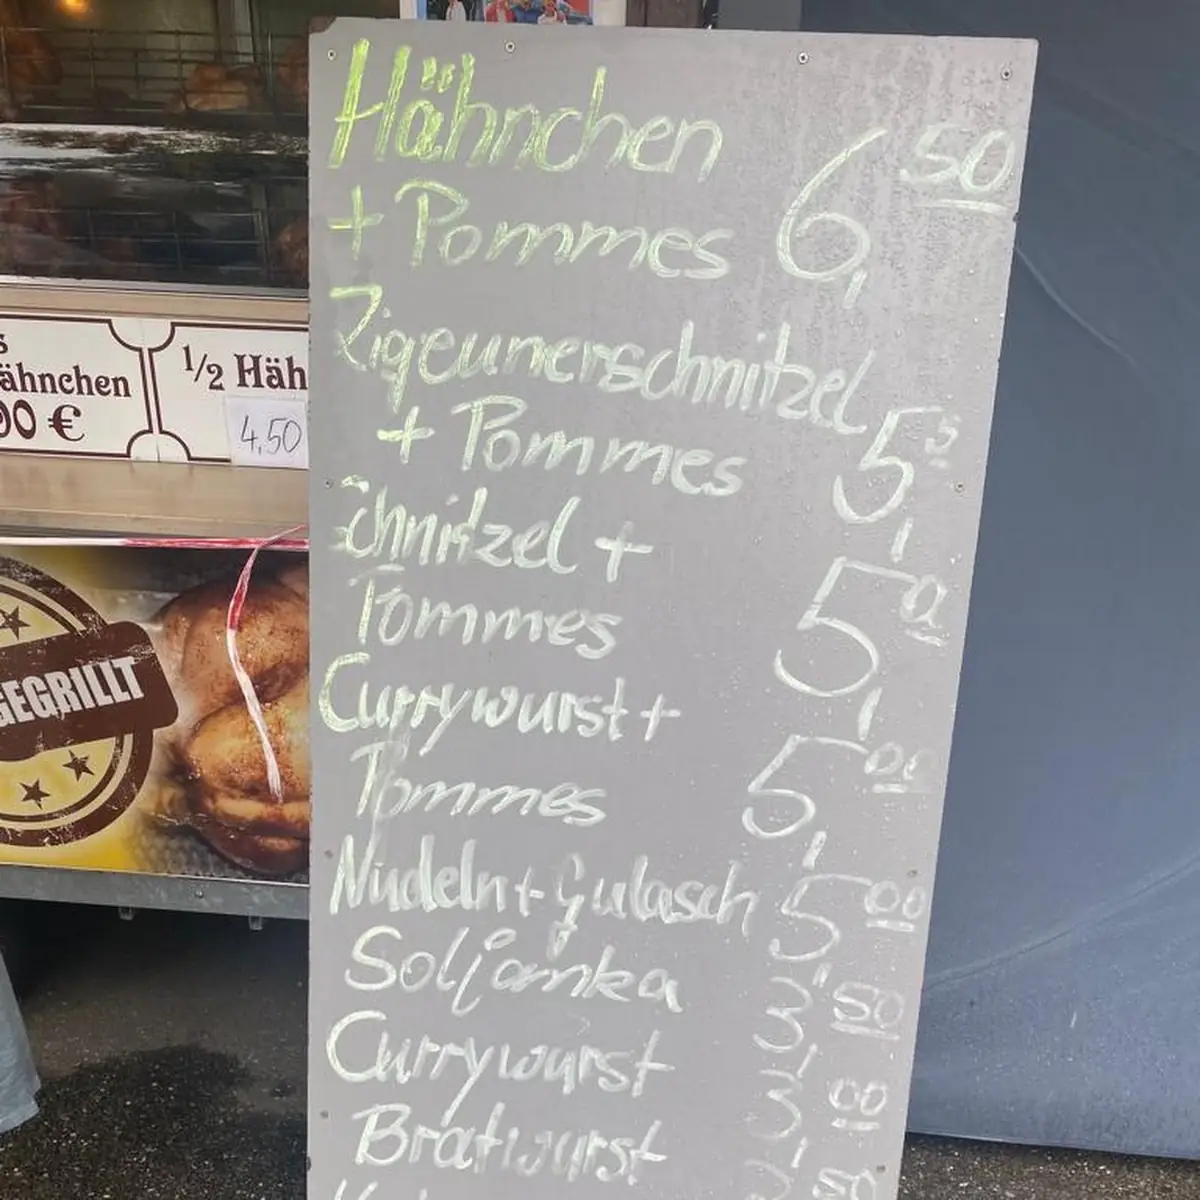 Hähnchen
+ Pommes 6,50
Zigeunerschnitzel
+ Pommes 5,5
Schnitzel +
Pommes 5,0
Currywurst +
Pommes 5,00
Nudeln + Gulasch 5,00
Soljanka 3,50
Currywurst 3,00
Bratwurst 2,50
ähnchen
00 €
1/2 Häh
4,50
GEGRILLT